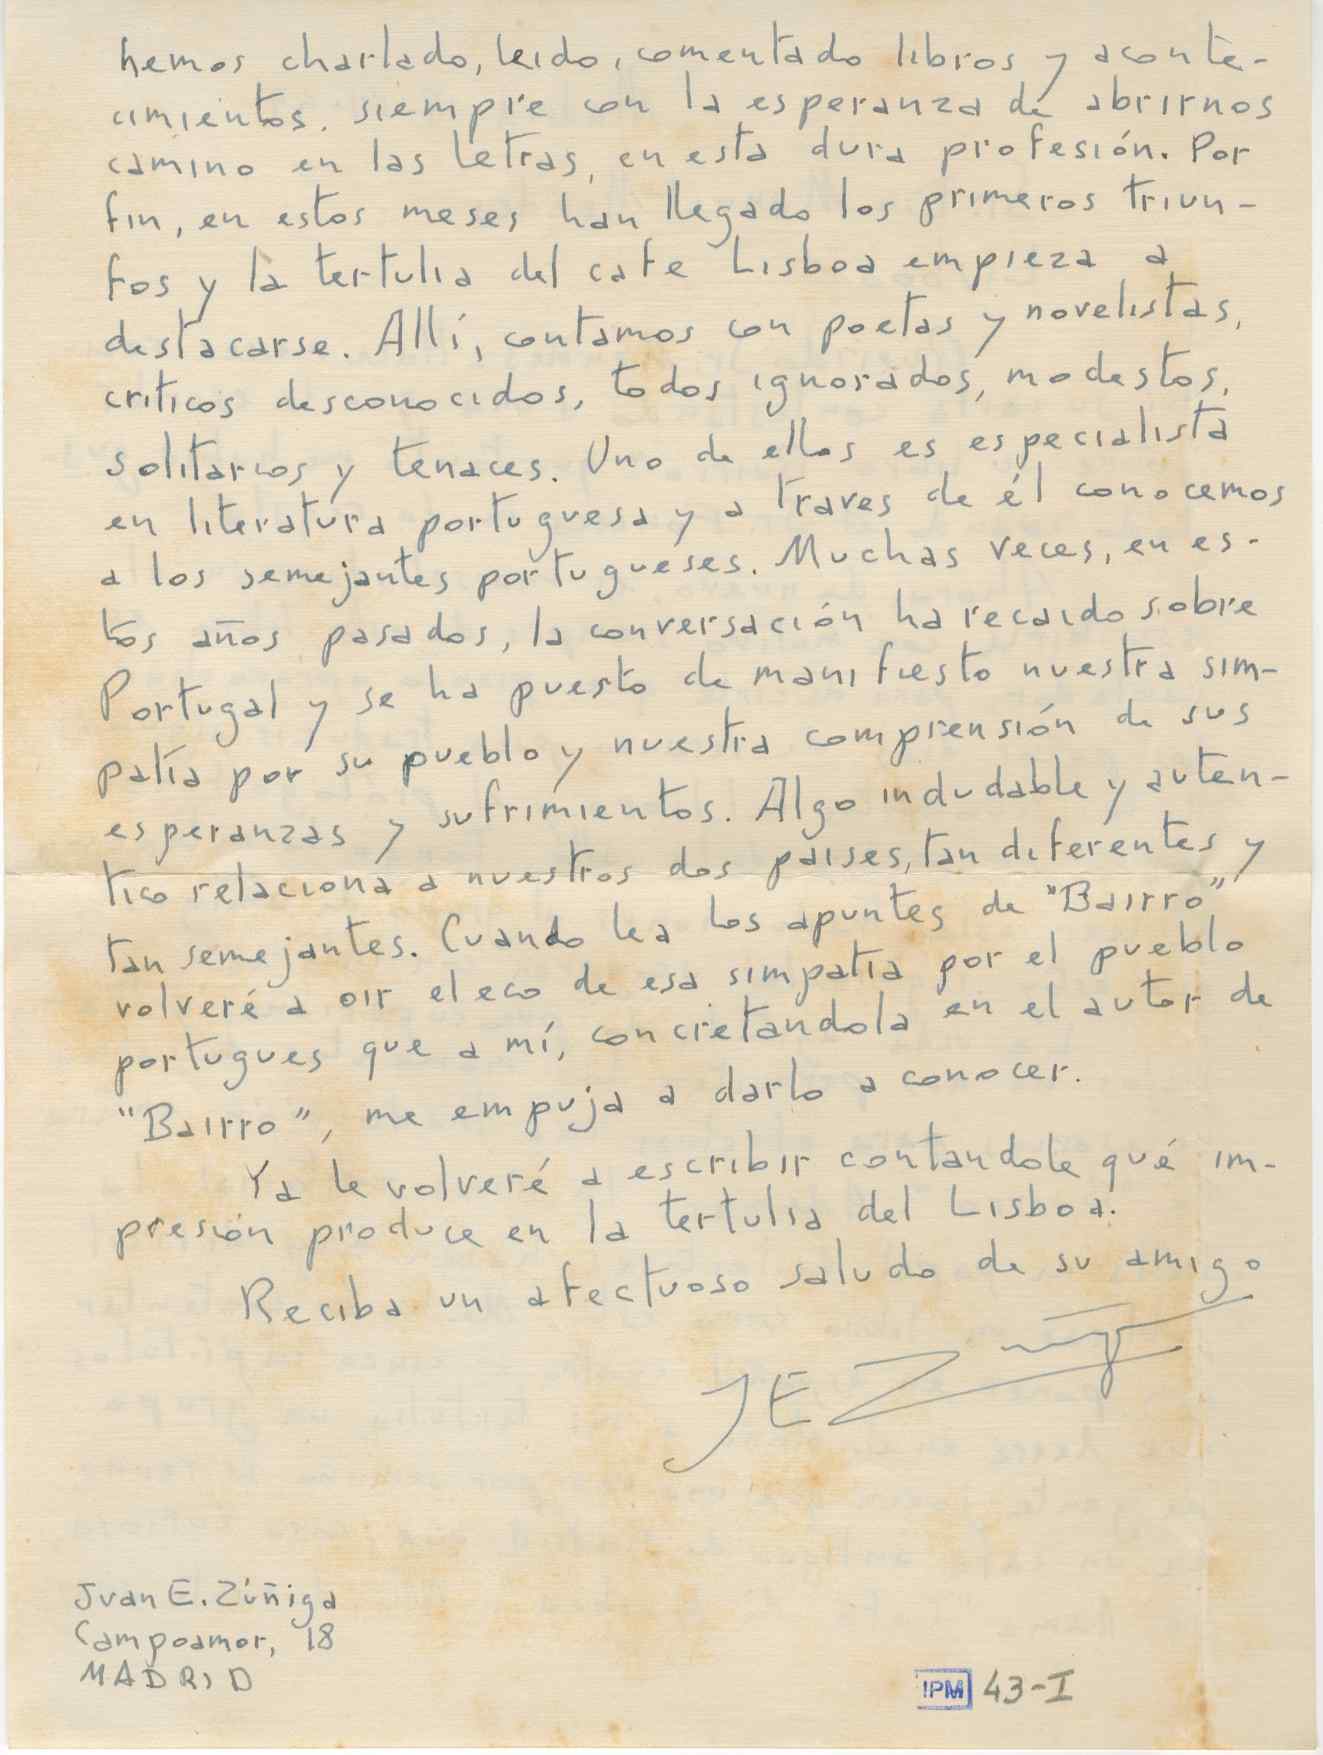 hemos charlado, leido, comentado libros y aconte-
cimientos. siempre con la esperanza de abrirnos
camino en las letras, en esta dura profesión. Por
fin, en estos meses han llegado los primeros triun-
fos y la tertulia del cafe Lisboa empieza a
destacarse. Allí, contamos con poetas y novelistas,
criticos desconocidos, todos ignorados, modestos,
solitarios y tenaces. Uno de ellos es especialista
en literatura portuguesa y a traves de él conocemos
a los semejantes portugueses. Muchas veces, en es-
tos años pasados, la conversación ha recaido sobre
Portugal y se ha puesto de manifiesto nuestra sim-
patía por su pueblo y nuestra comprensión de sus
esperanzas y sufrimientos. Algo indudable y auten-
tico relaciona a nuestros dos paises, tan diferentes y
tan semejantes. Cuando lea los apuntes de "Bairro"
volveré a oir el eco de esa simpatía por el pueblo
portugues que a mí, concretandola en el autor de
"Bairro", me empuja a darlo a conocer.
Ya le volveré a escribir contandole qué im-
presión produce en la tertulia del Lisboa.
Reciba un afectuoso saludo de su amigo
JEZúñiga
Juan E. Zúñiga
Campoamor, 18
MADRID
IPM 43-I